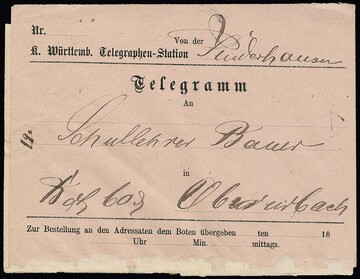 Nr.
Von der
K. Württemb. Telegraphen-Station
Telegramm
An
Schullehrer Bauer
in
Zur Bestellung an den Adressaten dem Boten übergeben ten 18
Uhr Min. mittags.